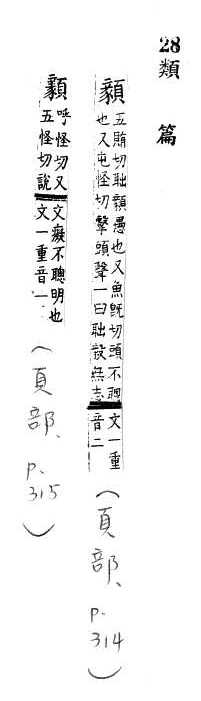 28類 篇
顡 五賄切聉顡愚也又魚旣切頭不聰
也又屯怪切擊頭聲一曰聉設無志
文一重
音二
(頁部、p.314)
顡 呼怪切又
五怪切說
文癡不聰明也
文一重音一
(頁部、p.315)